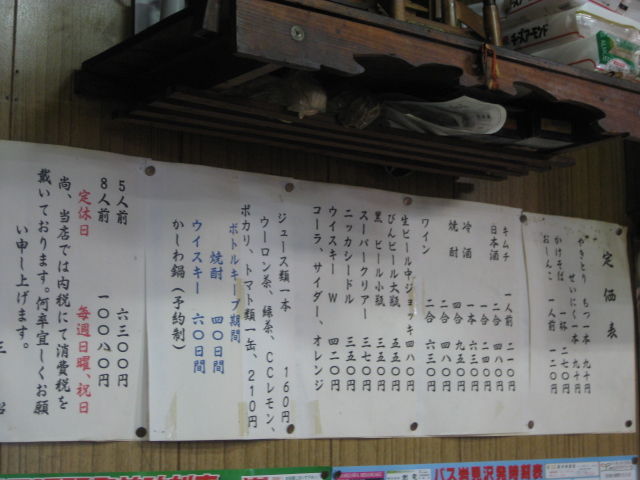 定価表
やきとり もつ一本 九十円
せいにく一本 九十円
かけそば 一杯 二七〇円
おしんこ 一人前 一二〇円
キムチ 一人前 二一〇円
日本酒 二合 四八〇円
一合 二四〇円
冷酒 一本 六三〇円
焼酎 四合 九五〇円
二合 四八〇円
ワイン 二合 六三〇円
生ビール中ジョッキ 四八〇円
びんビール大瓶 五五〇円
黒ビール小瓶 三五〇円
スーパークリアー 三七〇円
ニッカシードル 三五〇円
ウイスキー W 四二〇円
コーラ、サイダー、オレンジ
ジュース類一本 160円
ウーロン茶、緑茶、CCレモン、
ポカリ、トマト類一缶、210円
ボトルキープ期間
焼酎 四〇日間
ウイスキー 六〇日間
かしわ鍋(予約制)
5人前 六三〇〇円
8人前 一〇〇八〇円
定休日 毎週日曜、祝日
尚、当店では内税にて消費税を
戴いております。何卒宜しくお願
い申し上げます。
チーズアーモンド
バス岩見沢発時刻表